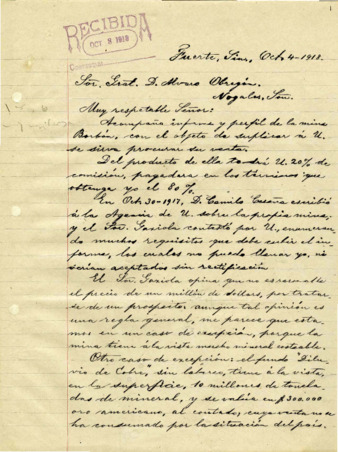 RECIBIDA
OCT 8 1918
Fuerte, Sin, Oct. 4-1918.
Sor. Gral. D. Alvaro Obregón.
Nogales, Son.
Muy respetable Señor:
Acompaño informe y perfil de la mina
Borbón, con el objeto de suplicar á U.
se sirva procurar su venta.
Del producto de ella tendrá U. 20% de
comisión, pagadera en los términos que
obtenga yo el 80%.
En Oct. 30-1917, D. Camilo escribió
á la Agencia de U. sobre la propia mina,
y el Sor. Gaxiola contestó por U., enumeran-
do muchos requisitos que debe cubrir el in-
forme, los cuales no puedo llenar yo, ni
serían aceptados sin rectificación.
El Sor. Gaxiola opina que no es razonable
el precio de un millón de dollars, por tratar-
se de un prospecto; aunque tal opinión es
una regla general, me parece que esta-
mos en un caso de excepción, porque la
mina tiene á la vista mucho mineral costeable.
Otro caso de excepción: el fundo "Dilu-
vio de Cobre", sin labores, tiene á la vista,
en la superficie, 10 millones de tonela-
das de mineral, y se valúa en $300.000
oro americano, al contado, cuya venta no se
ha consumado por la situación del país.